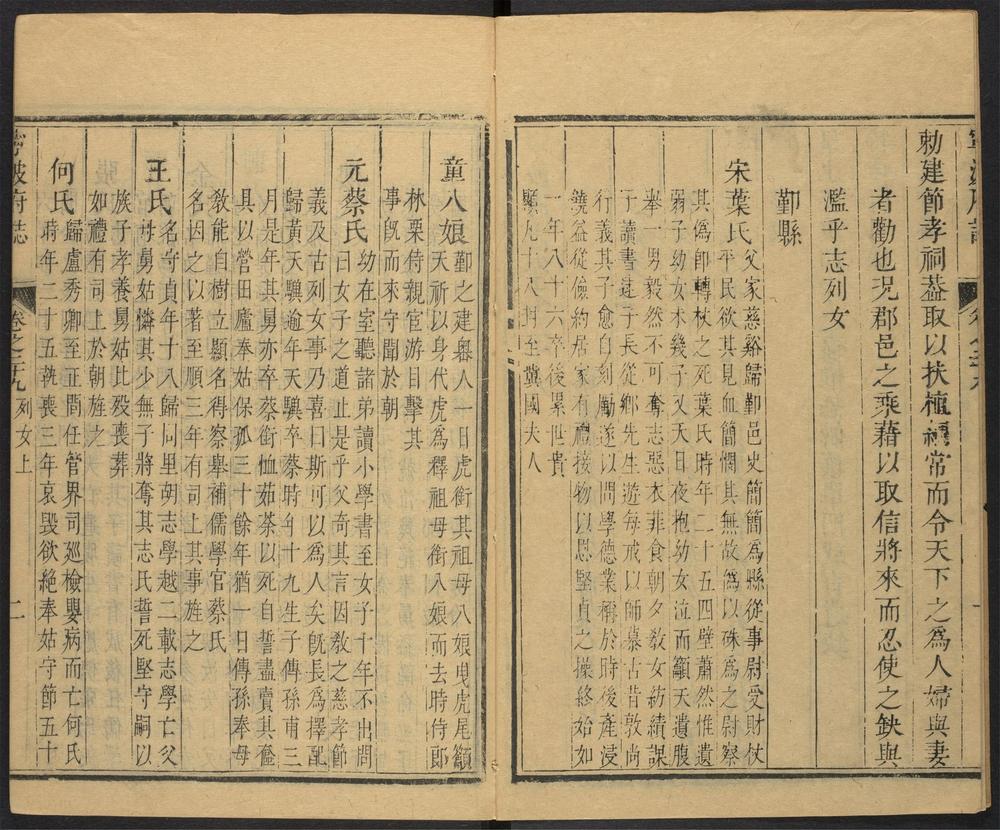 勅建節孝祠葢取以扶植綱常而令天下之為人婦與妻
者勸也况郡邑之乘藉以取信將來而忍使之鈌與
濫乎志列女
鄞縣
宋葉氏父家慈谿歸鄞邑史簡簡為縣從事尉受財仗
平民欲其見血簡憫其無故偽以硃為之尉察
其偽卽轉杖之死葉氏時年二十五四壁蕭然惟遺
弱子幼女未幾子又夭日夜抱幼女泣而籲天遺腹
舉一男毅然不可奪志惡衣菲食朝夕教女紡績課
子讀書逮子長從鄉先生遊每戒以師慕古昔敦尚
行義其子愈自刻勵遂以問學德業稱於時後產浸
饒益從儉約居家有禮接物以恩堅貞之操終始如
一年八十六卒後累世貴
顯九十八封至冀國夫人
童八娘鄞之建嶴人一日虎銜其祖母八娘曳虎尾籲
天祈以身代虎為釋祖母銜八娘而去時侍郎
林栗侍親官游目擊其
事旣而來守聞於朝
元蔡氏幼在室聽諸弟讀小學書至女子十年不出問
曰女子之道止是乎父奇其言因教之慈孝節
義及古列女事乃喜曰斯可以為人矣旣長為擇配
歸黃天驥逾年天驥卒蔡時年十九生子傳孫甫三
月是年其舅亦卒蔡銜恤茹荼以死自誓盡賣其奩
具以營田廬奉姑保孤三十餘年猶一日傳孫奉母
教能自樹立顯名得察舉補儒學官蔡氏
名因之以著至順三年有司上其事旌之
王氏名守貞年十八歸同里胡志學越二載志學亡父
母舅姑憐其少無子將奪其志氏誓死堅守嗣以
族子孝養舅姑比歿喪葬
如禮有司上於朝旌之
何氏歸盧秀卿至正間任管界司廵檢嬰病而亡何氏
時年二十五執喪三年哀毀欲絶奉姑守節五十
寧波府志
卷之三十九
列女上
二